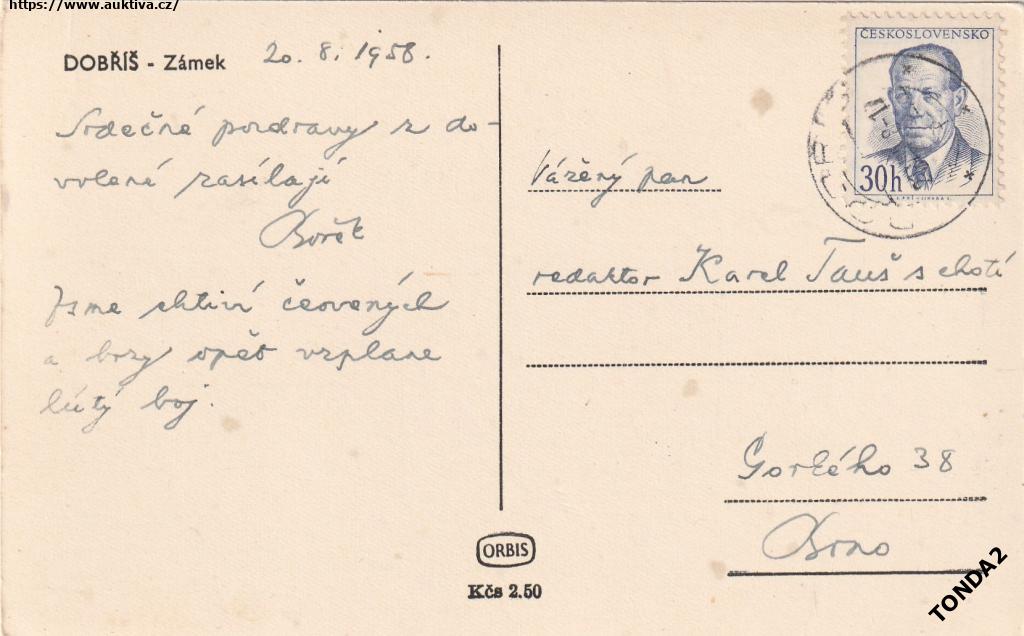 https://www.auktiva.cz/
DOBŘÍŠ - Zámek
20. 8. 1958.
Srdečné pozdravy z do-
volené zasílají
Jsme chtiví červených
a brzy opět vzplane
lítý boj.
ORBIS
Kčs 2.50
ČESKOSLOVENSKO
30h
Vážený pan
redaktor Karel Tauš s chotí
Gorkého 38
Brno
TONDA2